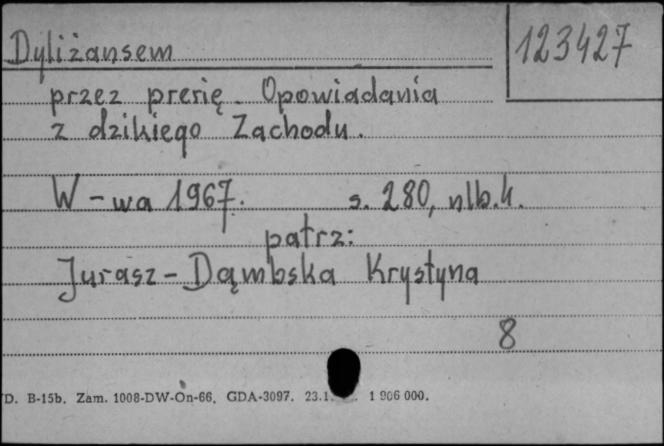 Dyliżansem
123427
przez prerię. Opowiadania
z dzikiego Zachodu.
W-wa 1967. s. 280, nlb. 4.
patrz:
Jurasz-Dąmbska Krystyna
8
D. B-15b. Zam. 1008-DW-On-66. GDA-3097. 23.1 1 906 000.